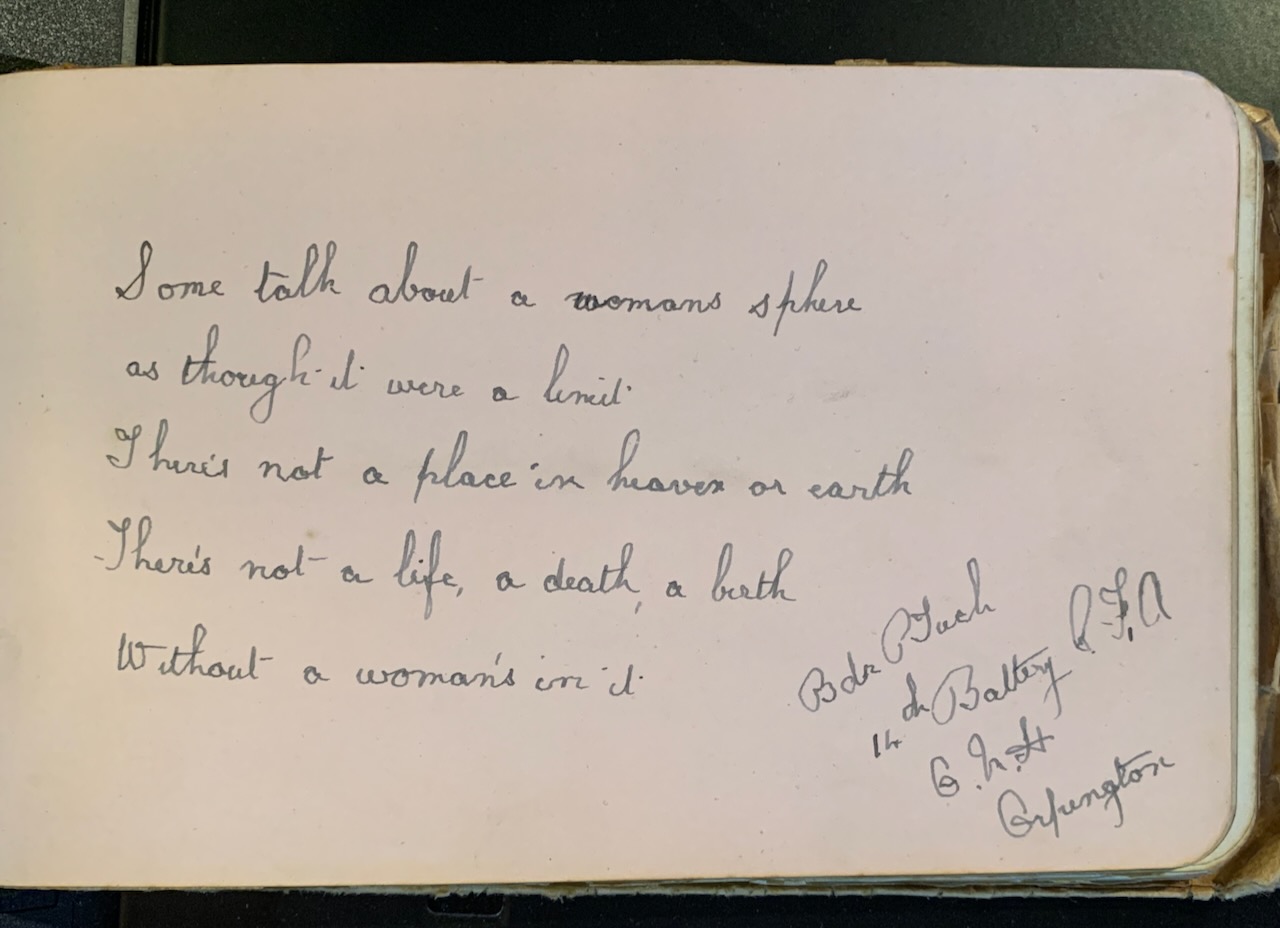 Some talk about a womans sphere
as though it were a limit
There's not a place in heaven or earth
There's not a life, a death, a birth
Without a woman's in it
Bdr
14 th Battery R.F,A
O.M.H
Orpington